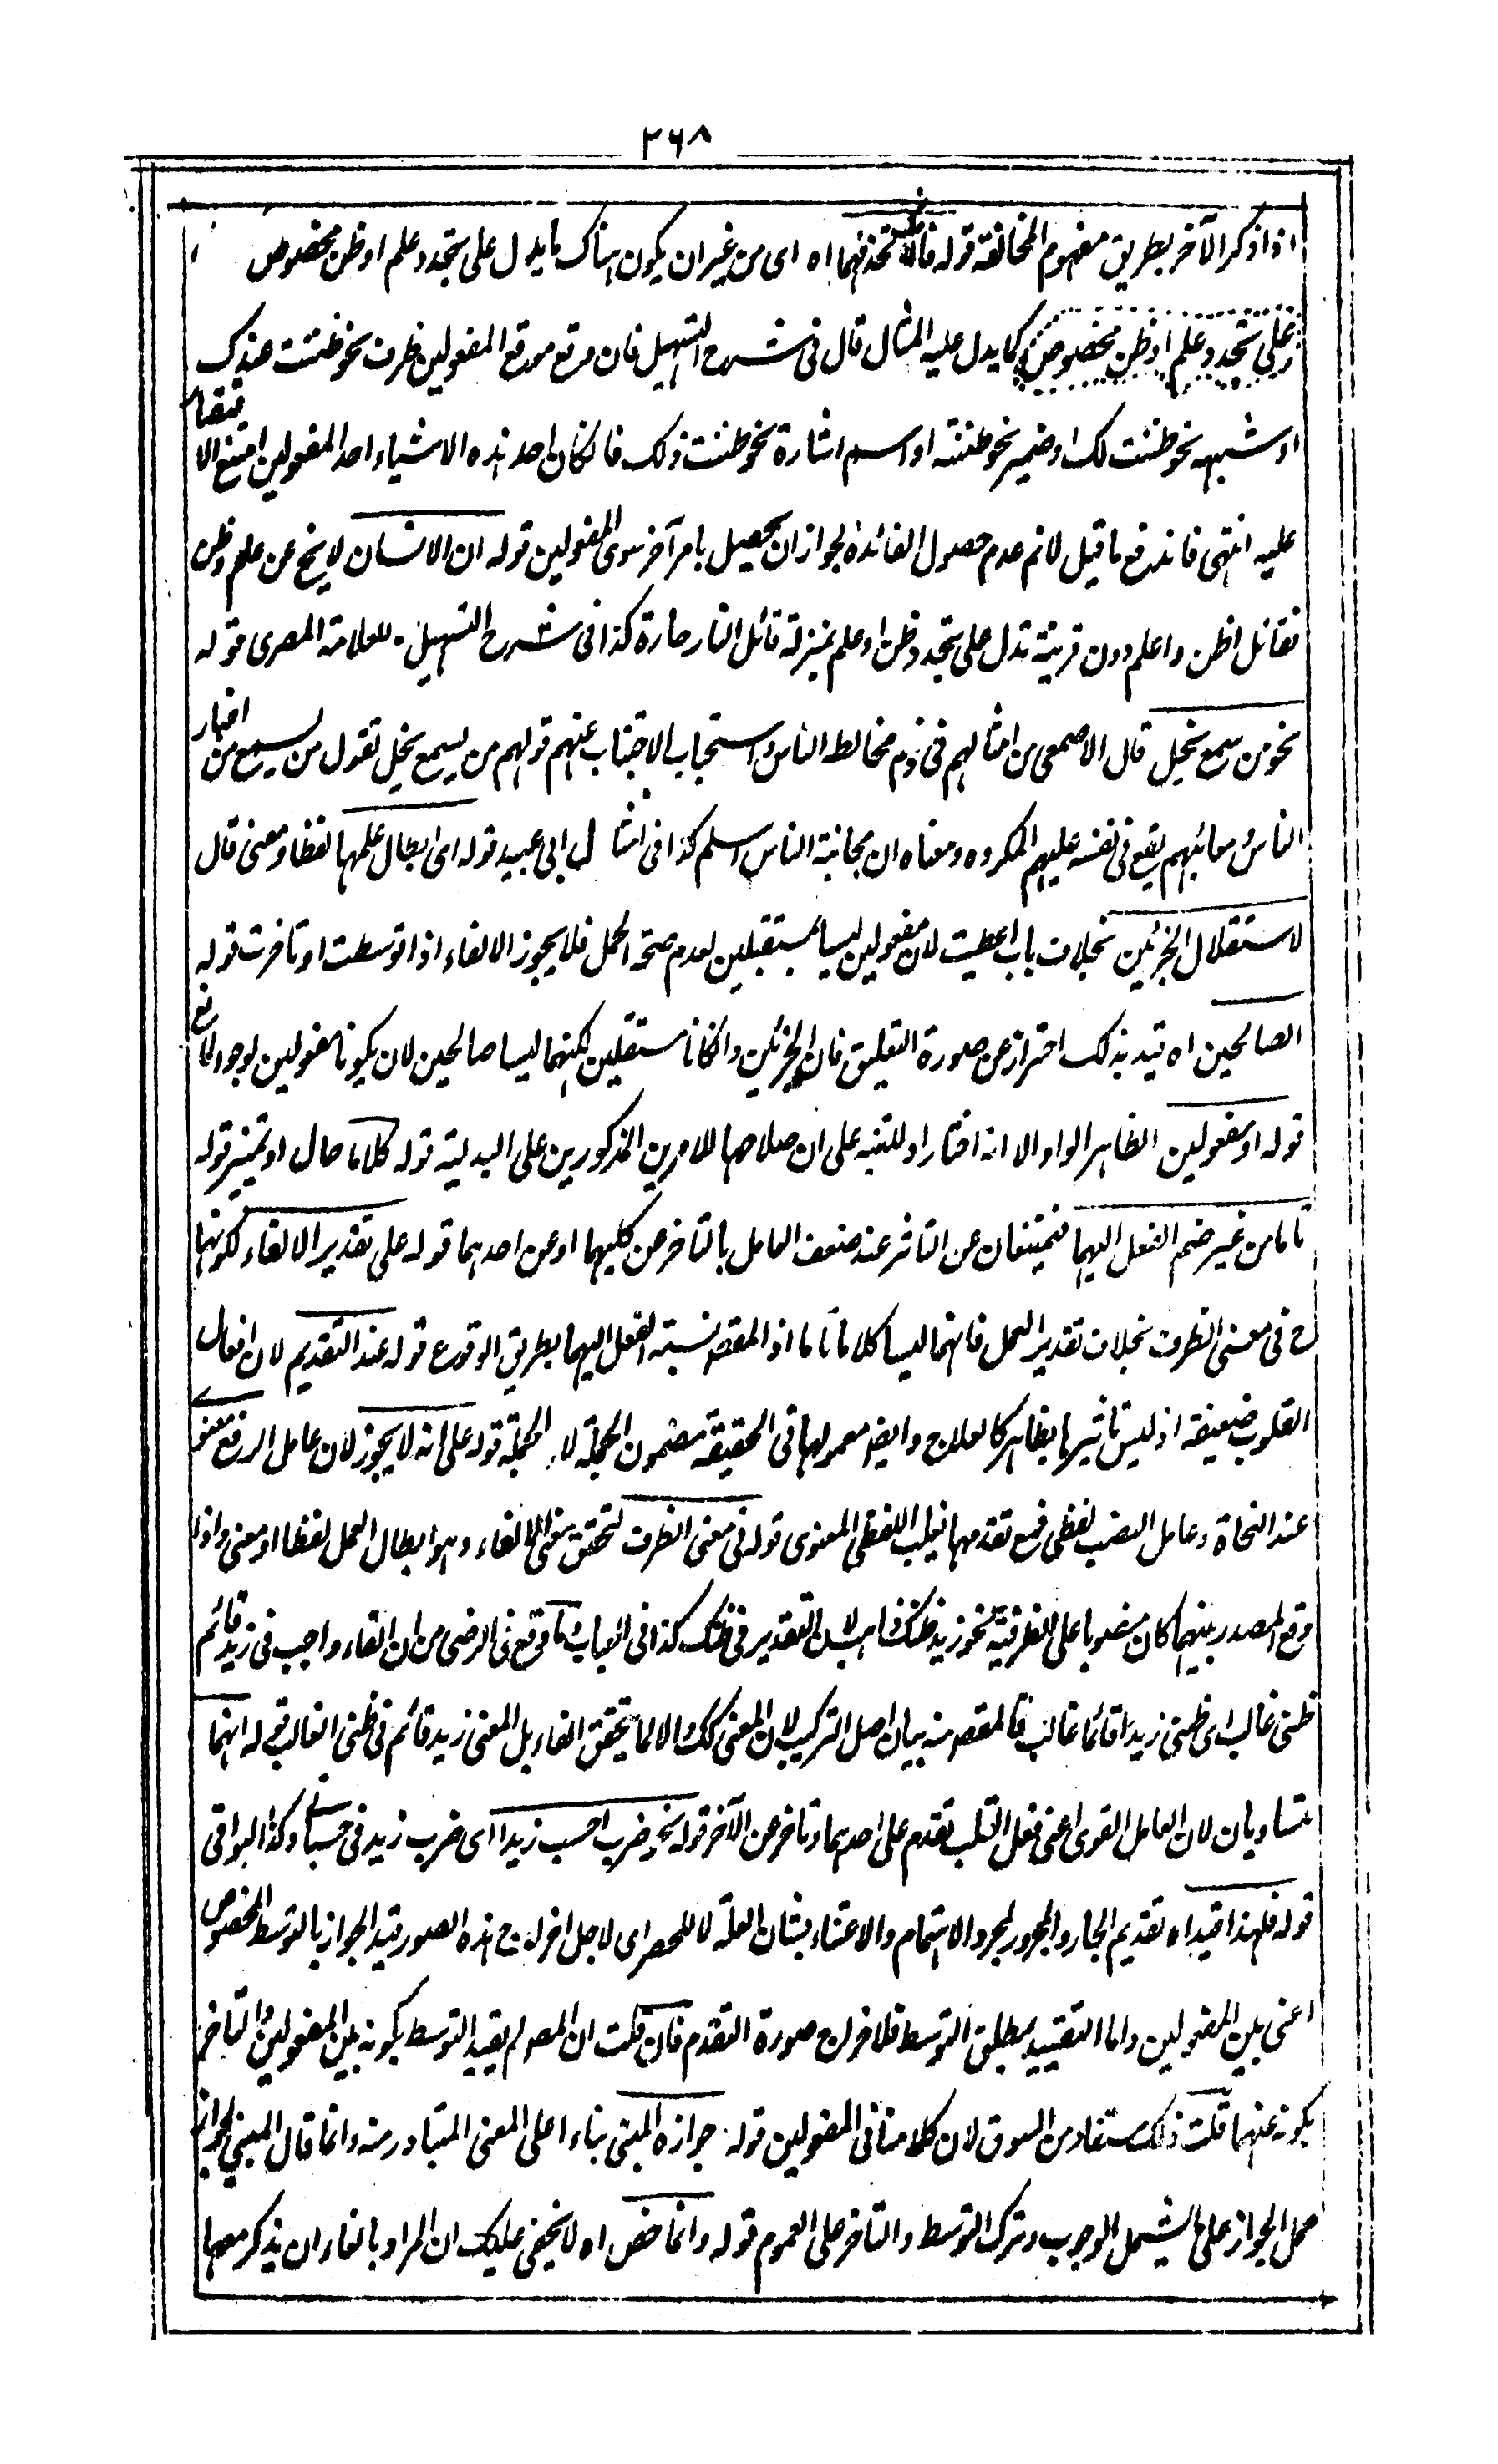 ٢٦٨
اذا ذكر الآخر بطريق مفهوم المخالفة قوله فلا تحذفهما اه اى من غير ان يكون هناك ما يدل على تجدد علم او ظن مخصوص
وعلى تجدد علم او ظن مخصوص كما يدل عليه المثال قال فى شرح التسهيل فان وقع موقع المفعولين ظرف نحو ظننت عندك
او شبهه نحو ظننت لك او ضمير نحو ظننته او اسم اشارة نحو ظننت ذلك فان كان احد هذه الاشياء احد المفعولين امتنع الاقتصار
عليه انتهى فاندفع ما قيل لانم عدم حصول الفائدة لجواز ان يحصل بامر آخر سوى المفعولين قوله ان الانسان لا يخ عن علم وظن
فقائل اظن واعلم دون قرينة تدل على تجدد ظن او علم بمنزلة قائل النار حارة كذا فى شرح التسهيل للعلامة المصرى قوله
نحو من يسمع يخل قال الاصمعى من امثالهم فى ذم مخالطة الناس واستحباب الاجتناب عنهم قولهم من يسمع يخل تقول من يسمع من اخبار
الناس ومعائبهم يقع فى نفسه عليهم المكروه ومعناه ان مجانبة الناس اسلم كذا فى امثال ابى عبيد قوله اى ابطال عملها لفظا ومعنى قال
لاستقلال الجزئين بخلاف باب اعطيت لان مفعوليه ليسا بمستقلين لعدم صحة الحمل فلا يجوز الالغاء اذا توسطت او تاخرت قوله
الصالحين اه قيد بذلك احتراز عن صورة التعليق فان الجزئين وان كانا مستقلين لكنهما ليسا صالحين لان يكونا مفعولين لوجود المانع
قوله او مفعولين الظاهر الواو الا انه اختار او للتنبيه على ان صلاحهما للامرين المذكورين على البدلية قوله كلاما حال او تمييز قوله
تاما من غير ضم الفعل اليهما فيمتنعان عن التاثر عند ضعف العامل بالتاخر عن كليهما او عن احدهما قوله على تقدير الالغاء لكونها
ح فى معنى الظرف بخلاف تقدير العمل فانهما ليسا كلاما تاما اذ المقصود نسبته الفعل اليهما بطريق الوقوع قوله عند التقديم لان افعال
القلوب ضعيفة اذ ليس تاثيرها بظاهر كالعلاج وايضا معمولها فى الحقيقة مضمون الجملة لا الجملة قوله على انه لا يجوز لان عامل الرفع معنوى
عند النحاة وعامل النصب لفظى فمع تقدمهما يغلب اللفظى المعنوى قوله فى معنى الظرف لتحقق معنى الالغاء وهو ابطال العمل لفظا او معنى واذا
وقع المصدر بينهما كان منصوبا على الظرفية نحو زيد ظنك ذاهب لان التقدير فى ظنك كذا فى العباب وما وقع فى الرضى من ان الغاء واجب فى زيد قائم
ظنى غالب اى ظنى زيدا قائما غالب فالمقصود منه بيان اصل التركيب لان المعنى كك والا لما يتحقق الغاء بل المعنى زيد قائم فى ظنى الغالب قوله انهما
متساويان لان العامل القوى اعنى فعل القلب تقدم على احدهما وتاخر عن الآخر قوله نحو ضرب احسب زيدا اى ضرب زيد فى حسبانى وكذا البواقى
قوله فلهذا قيد اه تقديم الجار والمجرور لمجرد الاهتمام والاعتناء بشان العلة لا للحصر اى لاجل اخراج هذه الصور قيد الجواز بالتوسط المخصوص
اعنى بين المفعولين واما التقييد بمطلق التوسط فلاخراج صورة التقدم فان قلت ان المص لم يقيد التوسط بكونه بين المفعولين والتاخر
بكونه عنهما قلت ذلك مستفاد من السوق لان كلامنا فى المفعولين قوله جوازه المبنى بناء على المعنى المتبادر منه وانما قال المبنى لجواز
حمل الجواز على ما يشمل الوجوب وترك التوسط والتاخر على العموم قوله وانما خص اه لا يخفى عليك ان المراد بالغاء ان يذكر معها